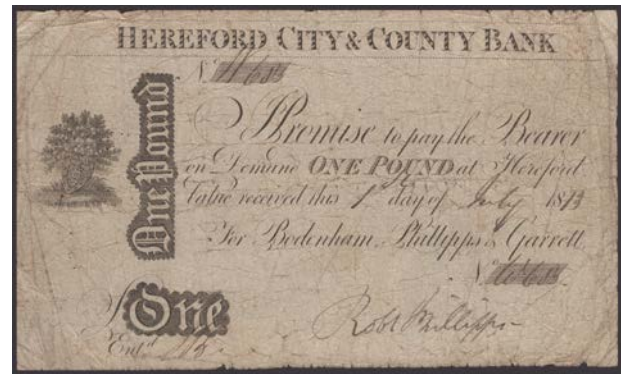 HEREFORD CITY & COUNTY BANK
One Pound
I Promise to pay the Bearer
on Demand ONE POUND at Hereford
Value received this 1 day of July 1813
For Bodenham, Phillipps & Garrett
£ One
Robt Phillipps
Entd